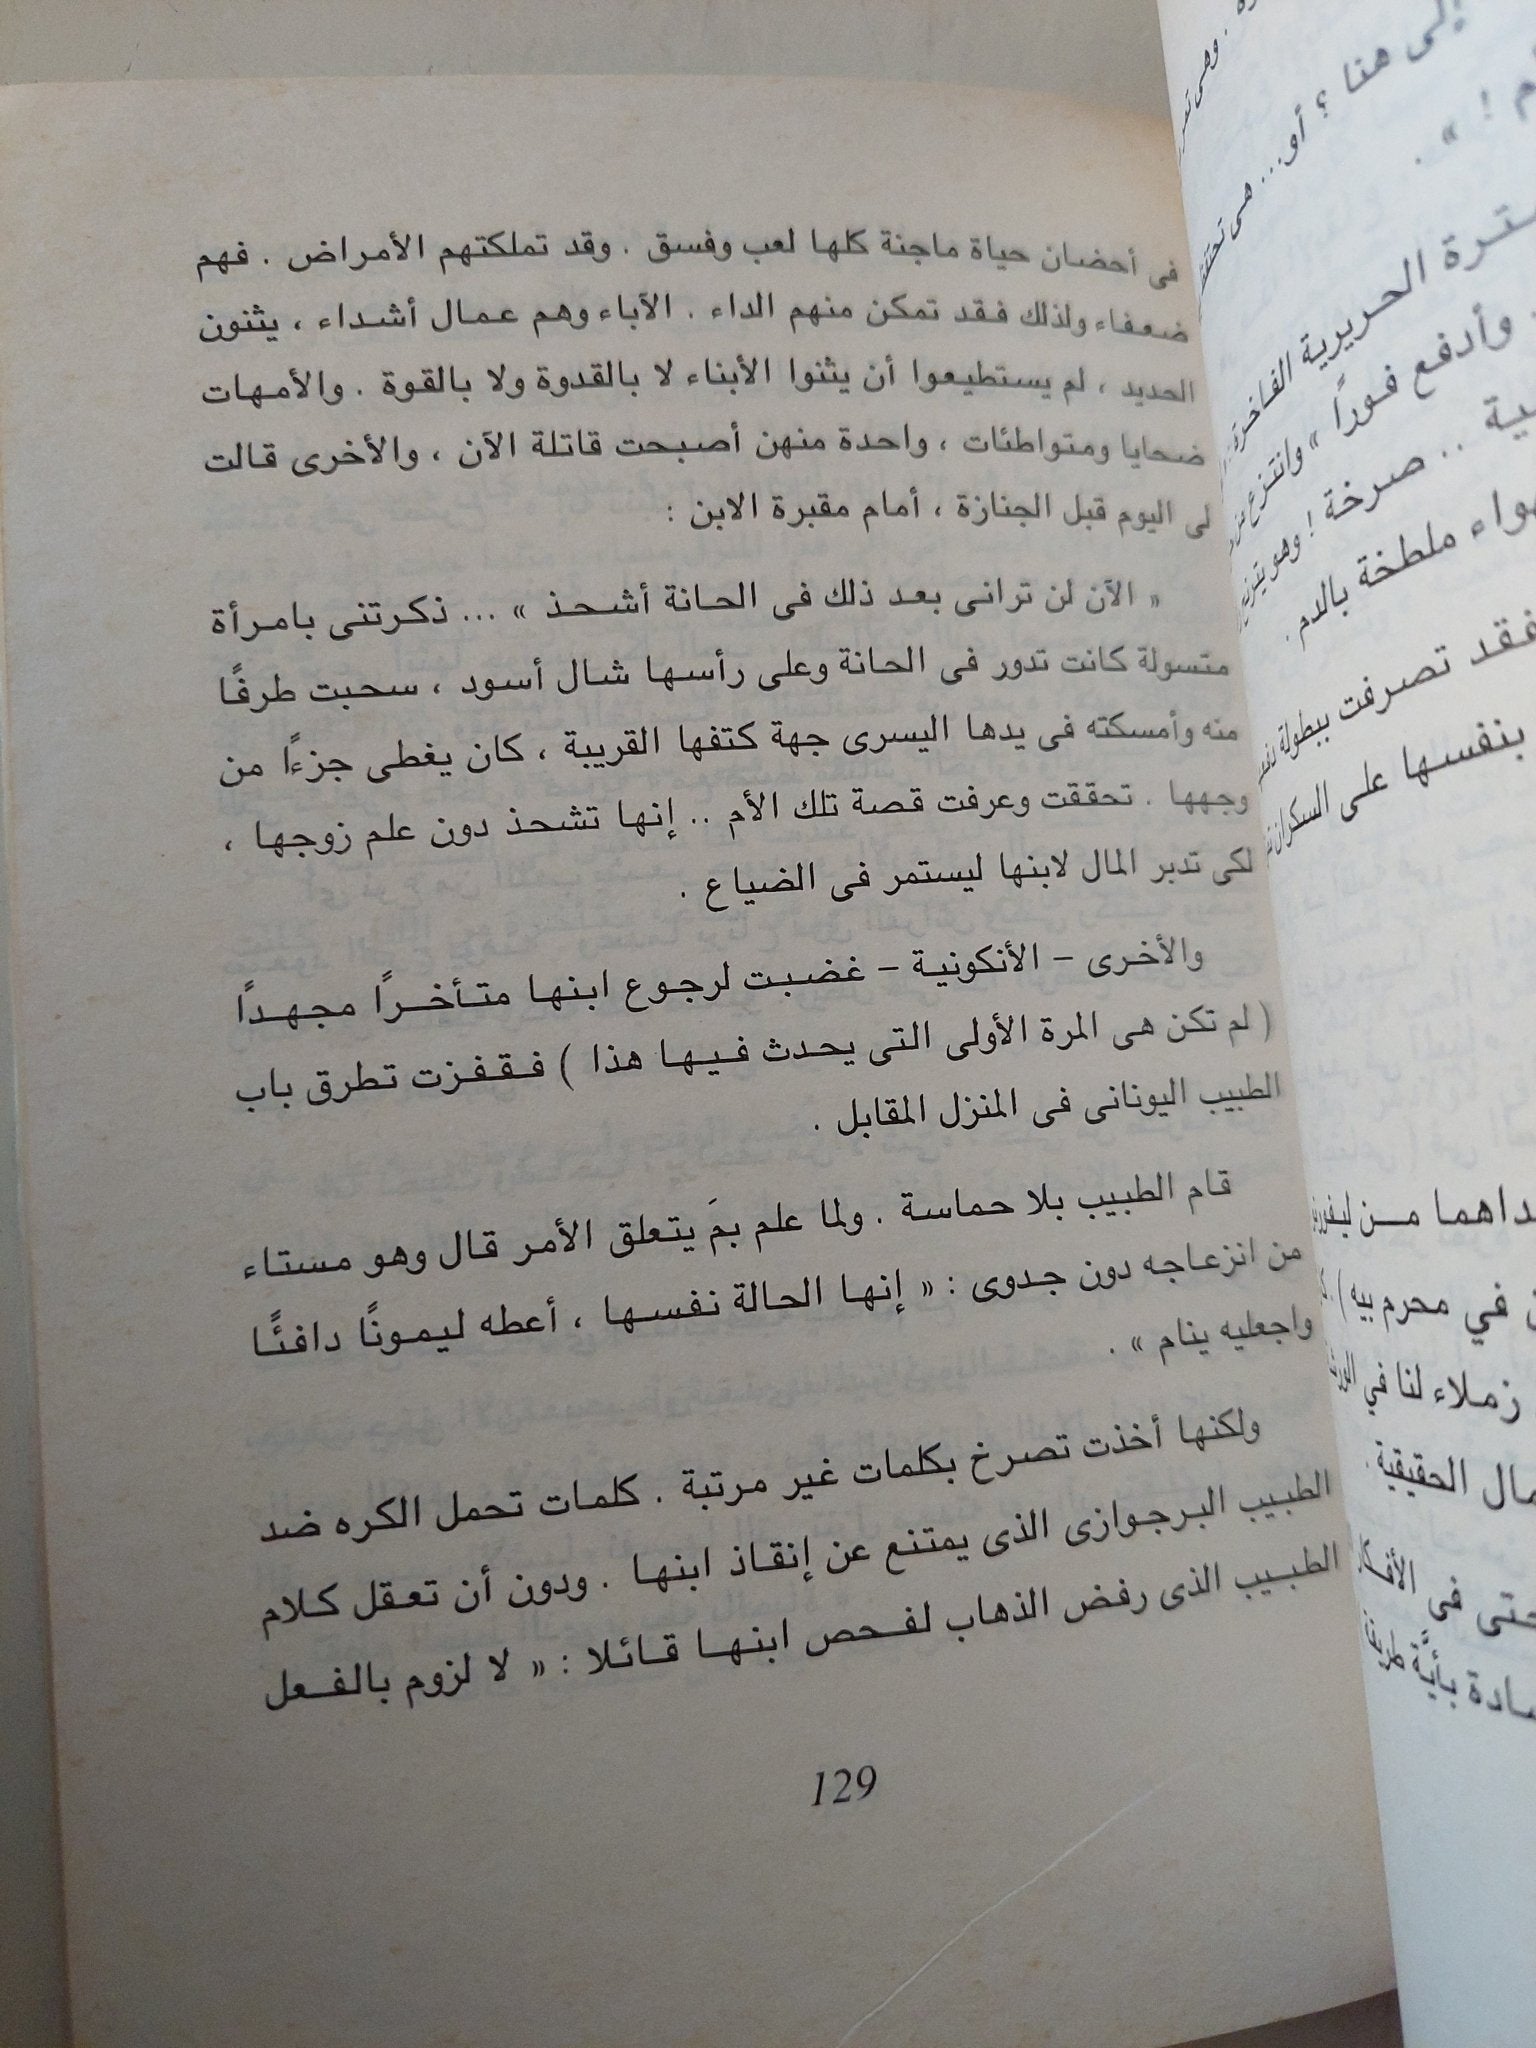 فى أحضان حياة ماجنة كلها لعب وفسق . وقد تملكتهم الأمراض . فهم
ضعفاء ولذلك فقد تمكن منهم الداء . الآباء وهم عمال أشداء ، يثنون
الحديد ، لم يستطيعوا أن يثنوا الأبناء لا بالقدوة ولا بالقوة . والأمهات
ضحايا ومتواطئات ، واحدة منهن أصبحت قاتلة الآن ، والأخرى قالت
لى اليوم قبل الجنازة ، أمام مقبرة الابن :
« الآن لن ترانى بعد ذلك فى الحانة أشحذ » ... ذكرتنى بامرأة
متسولة كانت تدور فى الحانة وعلى رأسها شال أسود ، سحبت طرفًا
منه وأمسكته فى يدها اليسرى جهة كتفها القريبة ، كان يغطى جزءًا من
وجهها . تحققت وعرفت قصة تلك الأم .. إنها تشحذ دون علم زوجها ،
لكى تدبر المال لابنها ليستمر فى الضياع .
والأخرى – الأنكونية – غضبت لرجوع ابنها متأخرًا مجهدًا
( لم تكن هى المرة الأولى التى يحدث فيها هذا ) فقفزت تطرق باب
الطبيب اليونانى فى المنزل المقابل .
قام الطبيب بلا حماسة . ولما علم بمَ يتعلق الأمر قال وهو مستاء
من انزعاجه دون جدوى : « إنها الحالة نفسها ، أعطه ليمونًا دافئًا
واجعليه ينام » .
ولكنها أخذت تصرخ بكلمات غير مرتبة . كلمات تحمل الكره ضد
الطبيب البرجوازى الذى يمتنع عن إنقاذ ابنها . ودون أن تعقل كلام
الطبيب الذى رفض الذهاب لفحص ابنها قائلا : « لا لزوم بالفعل
129
هنا ؟ أو... هى
الحريرية الفاخرة
وأدفع فورًا » وانتزع
.. صرخة ! وهو
ملطخة بالدم .
فقد تصرفت ببطولة
بنفسها على السكران
من
فى محرم بيه )
زملاء لنا في
الحقيقية .
فى الأفكار
بأيَّة